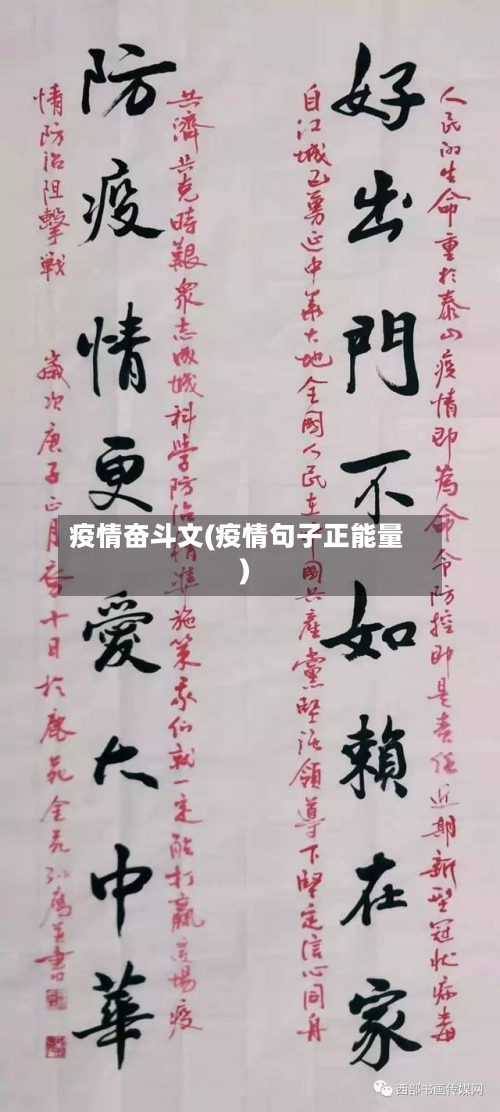 人民的生命重於泰山疫情即為命令防控即是責任近期新型冠狀病毒
好出門不如賴在家
自江城已蔓延中華大地全國人民在中國共產黨堅強領導下堅定信心同舟
共濟共克時艱眾志成城科學防治精準施策我們就一定能打贏這場疫
防疫情更愛大中華
情防治阻擊戰
歲次庚子正月初十日於鹿苑
疫情奋斗文(疫情句子正能量
)
西部书画传媒网